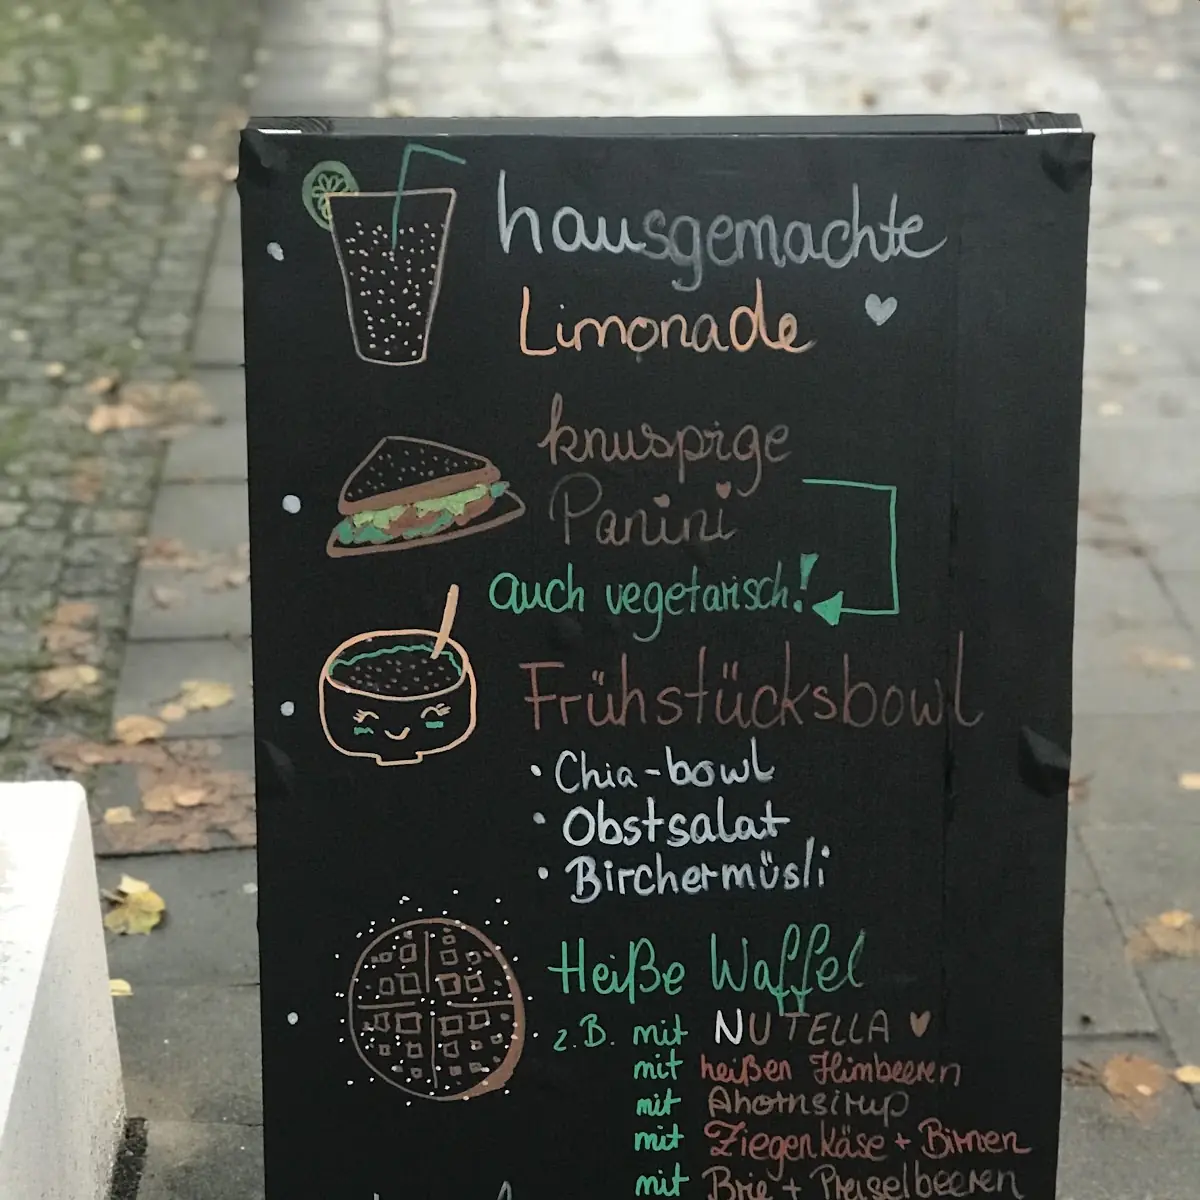 hausgemachte
Limonade
knusprige
Panini
auch vegetarisch!
Frühstücksbowl
• Chia-bowl
• Obstsalat
• Birchermüsli
Heiße Waffel
z.B. mit NUTELLA
mit heißen Himbeeren
mit Ahornsirup
mit Ziegenkäse + Birnen
mit Brie + Preiselbeeren